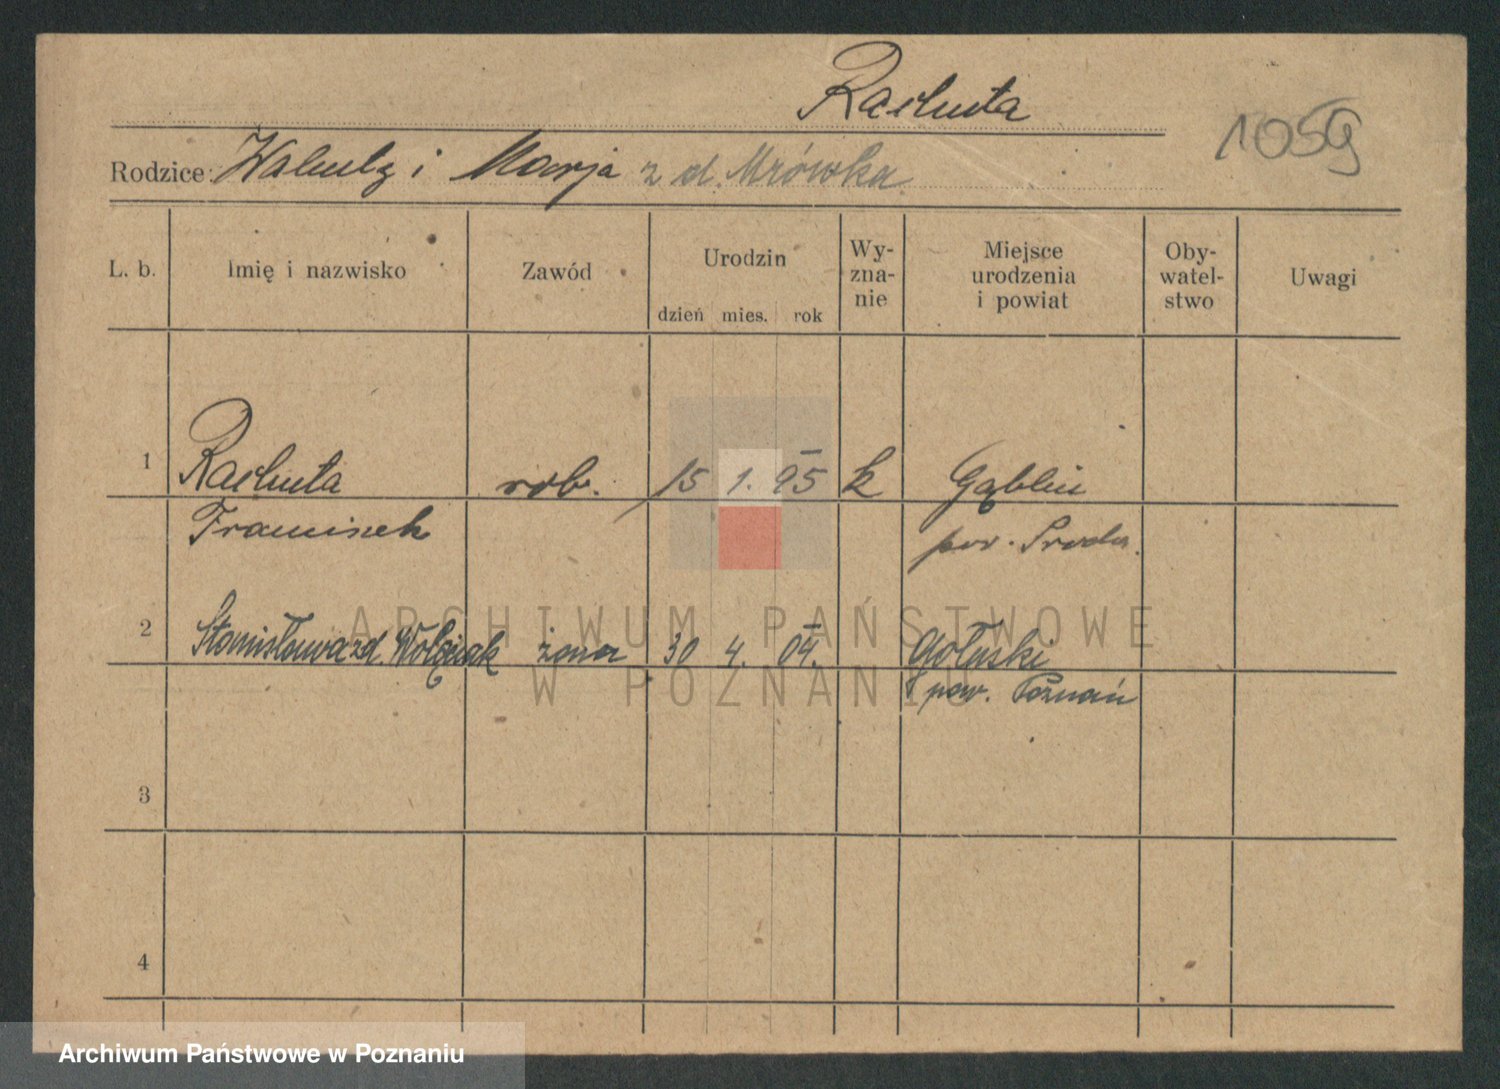 Rachuta
1059
Rodzice: Walenty i Marja z d. Mrówka
L. b. Imię i nazwisko Zawód Urodzin dzień mies. rok Wy-zna-nie Miejsce urodzenia i powiat Oby-watel-stwo Uwagi
1 Rachuta rob. 15 1. 95 k Gąblin
Franciszek pow. Środa.
2 Stanisława z d. Wołczak żona 30 4. 04. Gołuski
pow. Poznań
3
4
ARCHIWUM PAŃSTWOWE
W POZNANIU
Archiwum Państwowe w Poznaniu